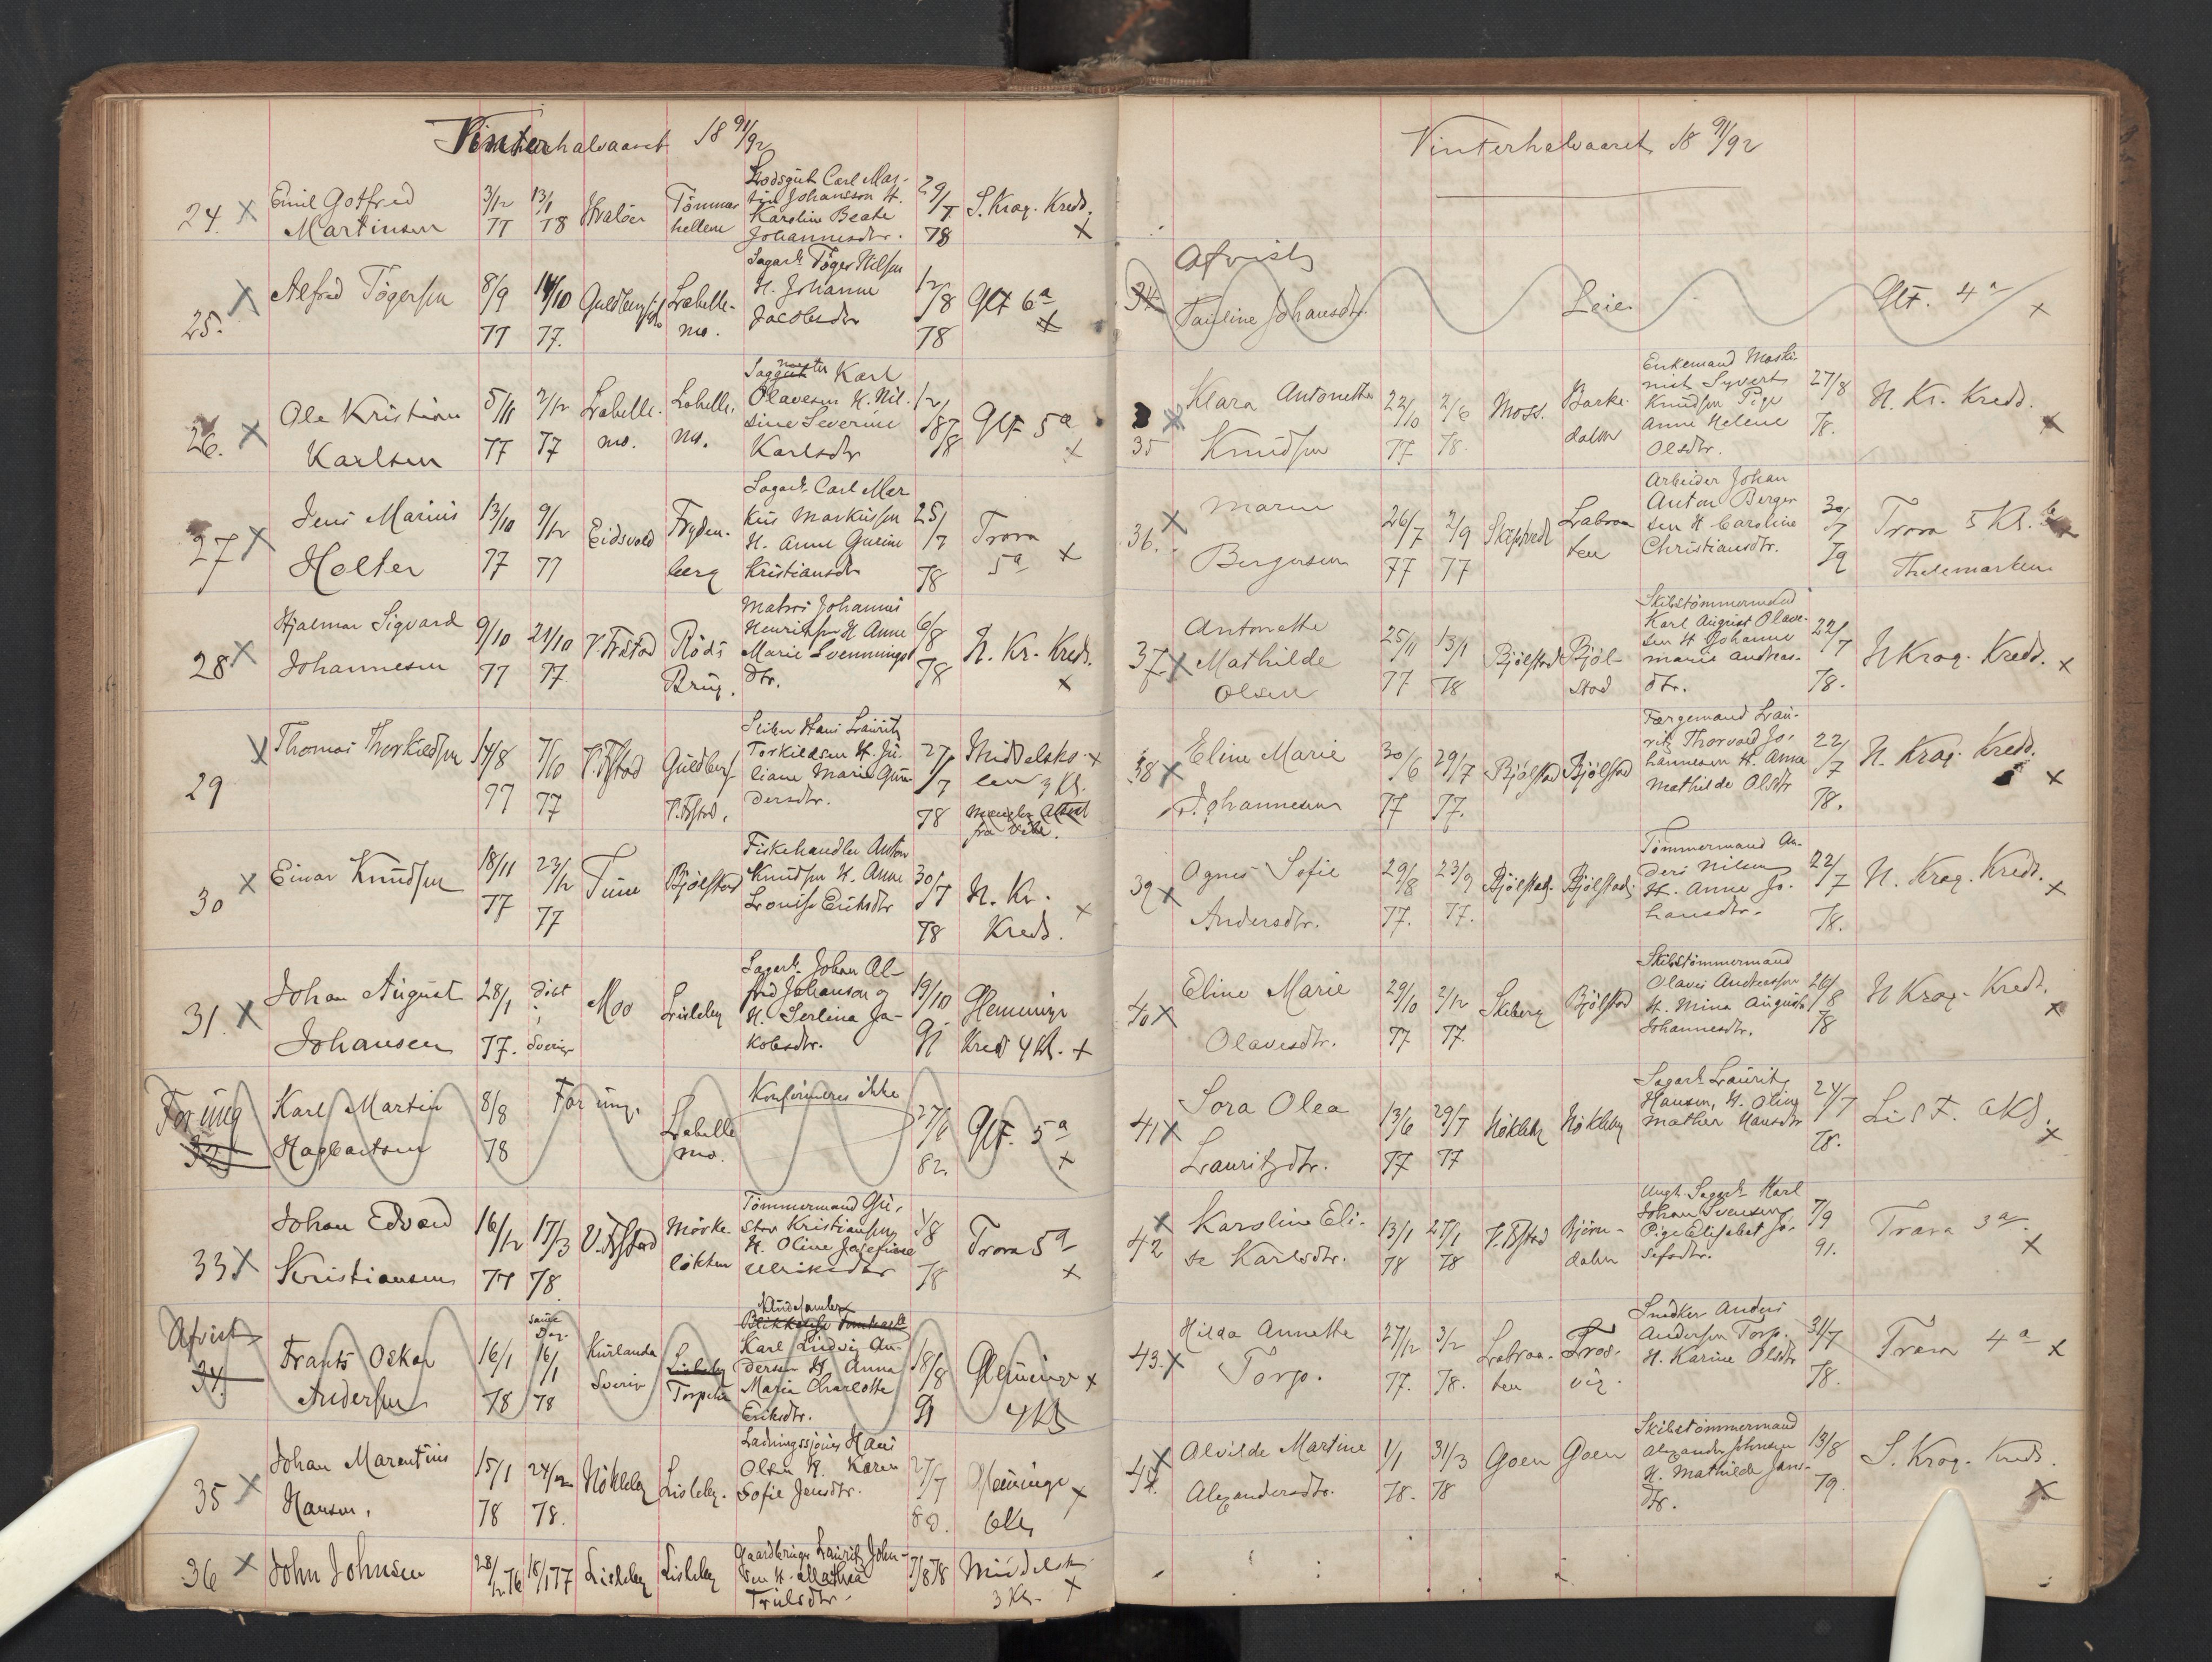 Vinterhalvaaret 18 91/92
24. X Emil Gotfred Martinsen 3/12 77 13/1 78 Hvaløer Tømmerhellene Carl Martin Johansson H. Karoline Beate Johannesdtr. 29/7 78 S. Krag. Kreds. X
25. X Alfred Tøgersen 8/9 77 14/10 77. Labellemo. Sagarb. Tøger Nilsen H. Johanne Jacobsdtr 12/8 78 Glf 6a X
26. X Ole Kristian Karlsen 5/11 77 2/12 77 Labellemo. Labellemo. Sagmester Karl Olavesen H. Nilsine Severine Karlsdtr 12/8 78 Glf 5a X
27 X Jens Marius Holter 13/10 77 9/12 77 Eidsvold Frydenberg Sagarb. Carl Markus Markussen H. Anne Gurine Kristiansdtr 25/7 78 Trara 5a X
28 X Hjalmar Sigvard Johannesen 9/10 77 21/10 77 V. Frstad Røds Brug. Matros Johannes Henriksen H Anne Marie Svenningsdtr. 6/8 78 N. Kr. Kreds. X
29 X Thomas Thorkildsen 14/8 77 7/10 77 V. Fstad Guldberg V. Fstad. Hans Lauritz Torkildsen H. Juliane Marie Gundersdtr. 27/7 78 Middelskolen 3 Kl. X
mangler Attest fra
30 X Einar Knudsen 18/11 77 23/12 77 Tune Bjølstad Fiskehandler Anton Knudsen H. Anne Lovise Eriksdtr 30/7 78 N. Kr. Kreds. X
31. X Johan August Johansen 28/1 77. døbt i Sverige Moo Lisleby Sagarb. Johan Alfred Johanson og H. Serlina Jakobsdtr. 19/10 91 Glemminge Kreds 4 Kl. X
For ung 32 Karl Martin Hagbartsen 8/8 78 For ung. Labellemo. Konfirmeres ikke 27/6 82. Glf. 5a X
33 X Johan Edvard Kristiansen 16/12 77 17/3 78. V. Fstad Mørkeløkken Tømmermand Gustav Kristiansen H. Oline Josefine Ulriksdtr 78 Trara 5a X
Afvist 34. Frants Oskar Andersen 16/1 78 samme Dag. 16/1 78 Sverige Lisleby Torpeler Karl Ludvig Andersen H Anna Maria Charlotte Eriksdtr. 18/8 91 Glemminge 4 Kl X
35 X Johan Marentius Hansen, 15/1 78 24/2 78. Nøkleby Lisleby. Ladningssjouer Hans Olsen H. Karen Sofie Jensdtr. 27/7 80. Glemminge 6 Kl X
36 X John Johnsen 28/12 76 18/1 77 Lisleby Lisleby Gaardbruger Lauritz Johnsen H. Mathea Trulsdtr. 7/8 78 Middelsk. 3 Kl. X
Vinterhalvaaret 18 91/92
Afvist
34 Pauline Johansdtr. Leie. Glf. 4a X
35 X Klara Antonette Knudsen 22/10 77 2/6 78. Moss. Barkedalen Enkemand Maskinist Syvert Knudsen Pige Anne Helene Olsdtr. 27/8 78. N. Kr. Kreds. X
36. X Maren Bergersen 26/7 77 2/9 77 Skiptvedt Labraaten Arbeider Johan Anton Bergersen H Caroline Christiansdtr. 30/7 79 Trara 5 Kl. Thelemarken
37 X Antonette Mathilde Olsen 25/11 77 13/1 78 Bjølstad Bjølstad Skibstømmermand Karl August Olavesen H Johanne Marie Andreasdtr. 22/7 78. N Krag. Kreds. X
38 X Eline Marie Johannesen 30/6 77 29/7 77. Bjølstad Bjølstad Færgemand Lauritz Thorvald Johannesen H. Anna Mathilde Olsdtr 22/7 78. N. Krag. Kreds. X
39 X Agnes Sofie Andersdtr. 29/8 77. 23/9 77. Bjølstad. Bjølstad. Tømmermand Anders Nilsen H. Anne Johansdtr. 22/7 78. N. Krag. Kreds. X
40 X Eline Marie Olavesdtr. 29/10 77 2/12 77. Skeberg Bjølstad Skibstømmermand Olaves Andreassen H. Mina Augusta Johannesdtr. 26/8 78 N Krag. Kreds. X
41 X Lauritzdtr. Sora Olea 13/6 77 29/7 77 Nøkleby Nøkleby Sagarb. Lauritz Hansen, H. Oline Mathea Hansdtr 24/7 78. X
42 X Karoline Elise Karlsdtr. 13/1 78 27/1 78 V. Fstad Bjørndalen Ungk. Sagarb. Karl Johan Svensen Pige Elisabet Josefsdtr. 7/9 91. Trara 3a. X
43. X Hilda Annette Torp. 27/12 77. 3/2 78. Labraaten Trosvig. Snedker Anders Andersen Torp. H. Karine Olsdtr 31/7 78. Trara 4a X
44. X Alvilde Martine Alexandersdtr. 1/1 78. 31/3 78 Goen Goen Skibstømmermand Alexander Johnsen H. Mathilde Jansdtr. 13/8 79. S. Krag. Kreds. X